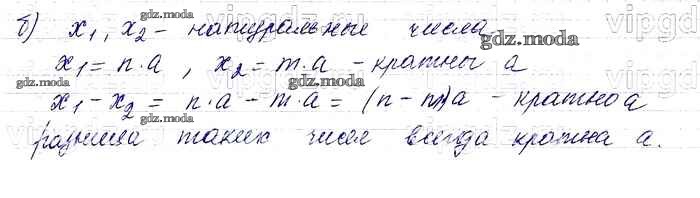 б) x₁, x₂ – натуральные числа
x₁ = n·a, x₂ = m·a – кратны a
x₁ – x₂ = n·a – m·a = (n – m)a – кратно a
разница таких чисел всегда кратна a.
gdz.moda
gdz.moda
gdz.moda
gdz.moda
gdz.moda